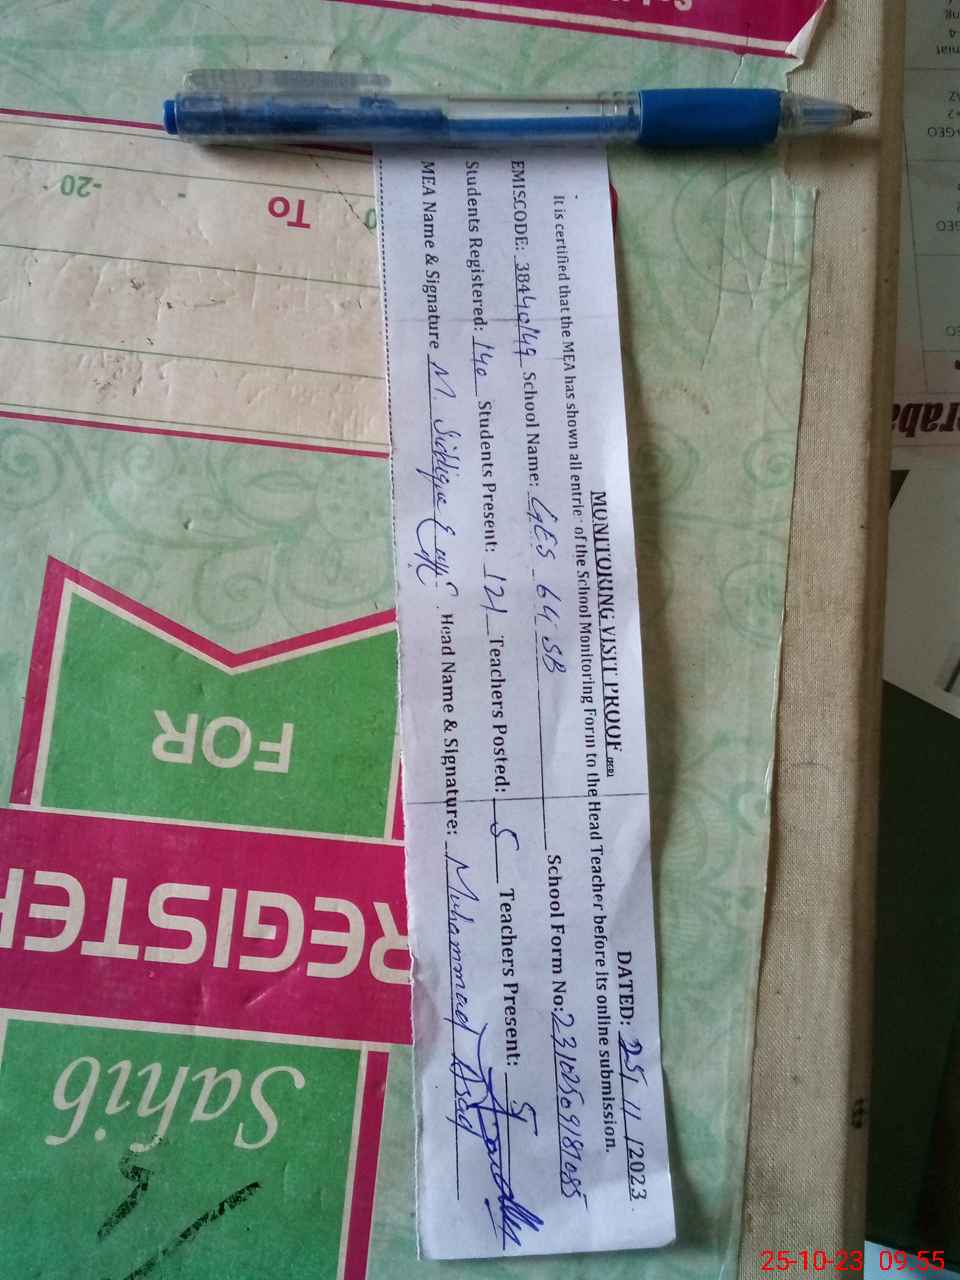 MONITORING VISIT PROOF
DATED: 25/11/2023
It is certified that the MEA has shown all entrie of the School Monitoring Form to the Head Teacher before its online submission.
EMISCODE: 38440149 School Name: GES 64 SB School Form No: 23102509187085
Students Registered: 140 Students Present: 121 Teachers Posted: 5 Teachers Present: 5
MEA Name & Signature M. Siddique Head Name & Signature: Muhammad Asad
To
-20
FOR
REGISTER
Sahib
25-10-23 09.55